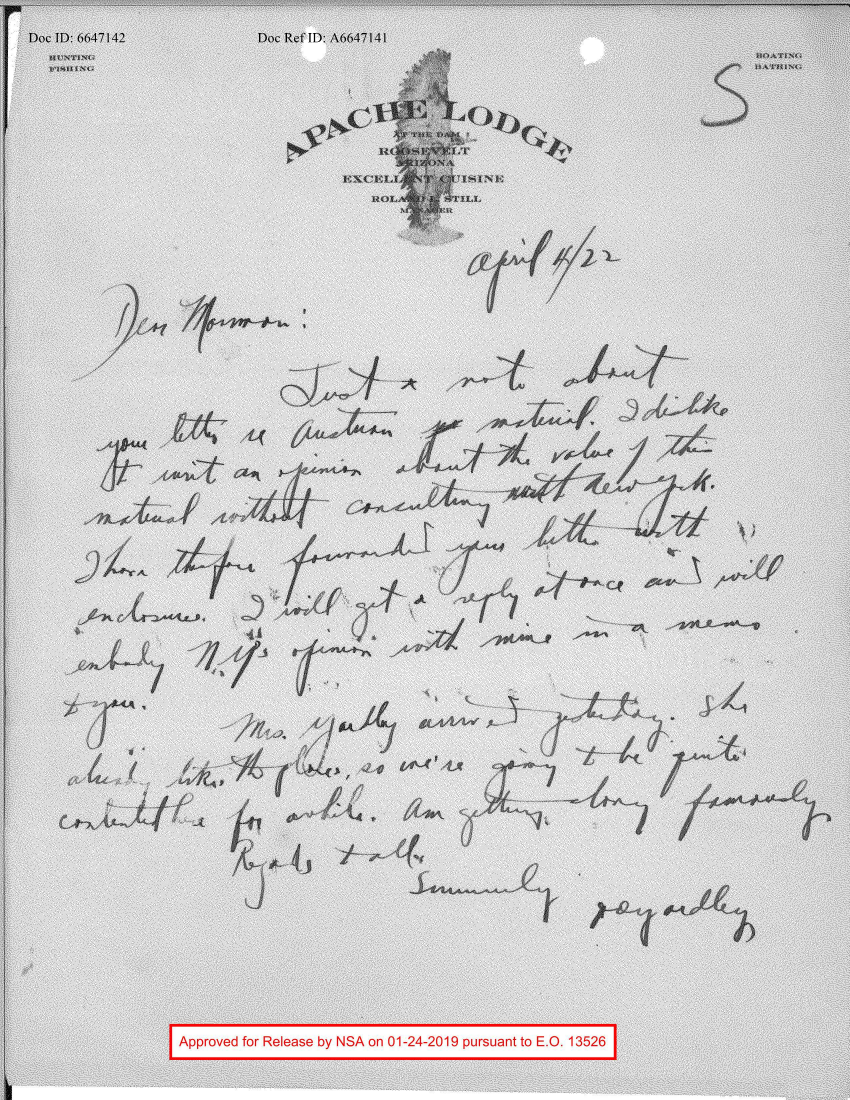 Doc ID: 6647142 Doc Ref ID: A6647141
HUNTING
FISHING
BOATING
BATHING
S
APACHE LODGE
AT THE DAM
ROOSEVELT
ARIZONA
EXCELLENT CUISINE
ROLAND L. STILL
MANAGER
April 4/22
Dear Moorman:
Just a note about
your letter re Austrian material. I dislike
an opinion about the value of this
material without consulting with New York.
I have therefore forwarded your letter with
enclosures. I will get a reply at once and will
embody N.Y.'s opinion with mine in a memo
to you.
Mrs. Yardley arrived yesterday. She
already likes the place, so we're going to be quite
contented here for awhile. Am getting along famously
Regards to all.
Sincerely
HOYardley
Approved for Release by NSA on 01-24-2019 pursuant to E.O. 13526